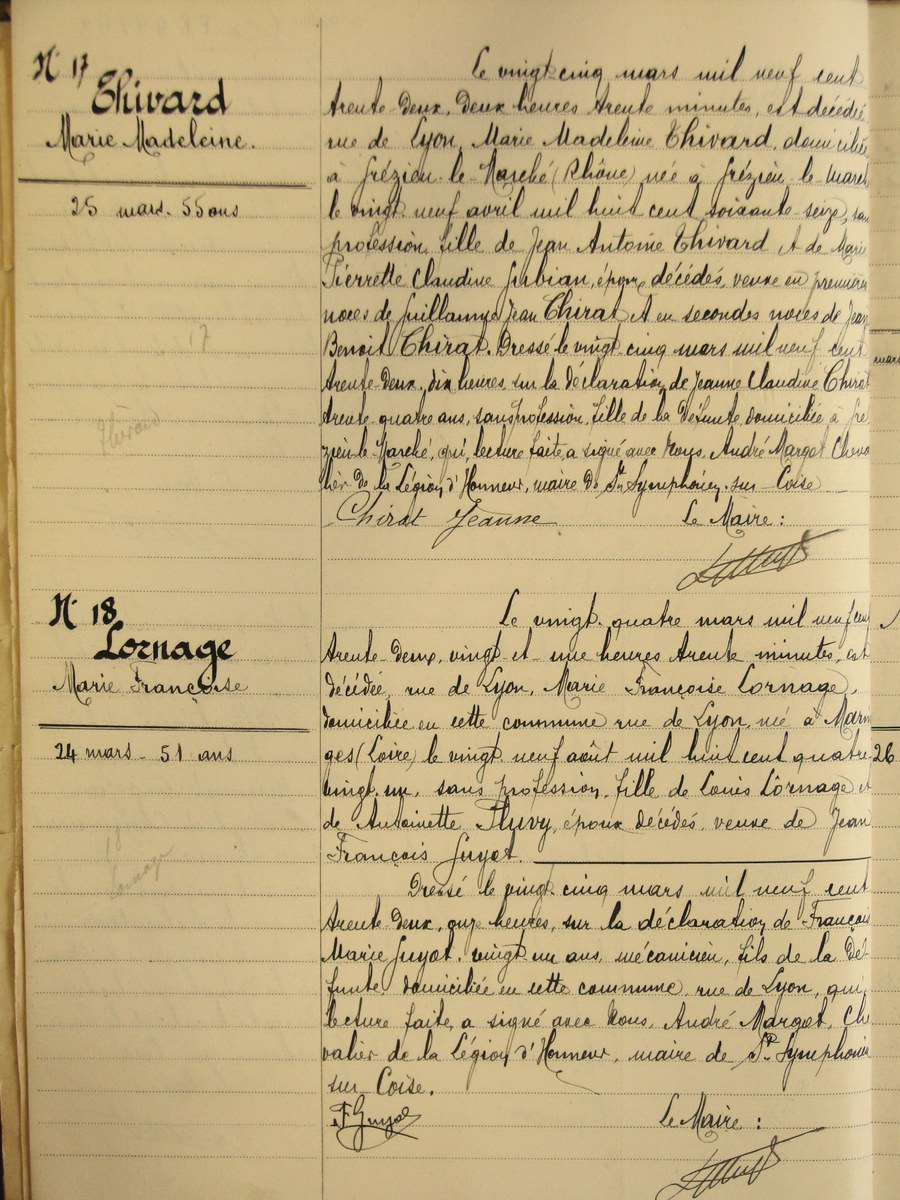 N° 17
Thivard
Marie Madeleine.
25 mars - 55 ans
17
Thivard
Le vingt cinq mars mil neuf cent
trente-deux, deux heures trente minutes, est décédée
rue de Lyon, Marie Madeleine Thivard, domiciliée
à Grézieu-le-Marché (Rhône) née à Grézieu le Marché
le vingt neuf avril mil huit cent soixante-seize, sans
profession, fille de Jean Antoine Thivard et de Marie
Pierrette Claudine Jubian, époux décédés, veuve en premières
noces de Guillaume Jean Chirat et en secondes noces de Jean
Benoit Chirat. Dressé le vingt cinq mars mil neuf cent
trente-deux, dix heures, sur la déclaration de Jeanne Claudine Chirat
trente quatre ans, sans profession, fille de la défunte, domiciliée à Gré
zieu-le-Marché, qui, lecture faite, a signé avec Nous, André Margot, Cheva
lier de la Légion d'Honneur, maire de St Symphorien-sur-Coise
Chirat Jeanne
Le Maire :
N° 18
Lornage
Marie Françoise
24 mars - 51 ans
18
Lornage
Le vingt-quatre mars mil neuf cent
trente-deux, vingt et une heures trente minutes, est
décédée, rue de Lyon, Marie Françoise Lornage,
domiciliée en cette commune rue de Lyon, née à Marin
ges (Loire) le vingt neuf août mil huit cent quatre-
vingt-un, sans profession, fille de Louis Lornage et
de Antoinette Pluvy, époux décédés, veuve de Jean
François Guyot.
Dressé le vingt cinq mars mil neuf cent
trente-deux, onze heures, sur la déclaration de François
Marie Guyot, vingt un ans, mécanicien, fils de la dé-
funte, domiciliée en cette commune, rue de Lyon, qui,
lecture faite, a signé avec Nous, André Margot, Che
valier de la Légion d'Honneur, maire de St Symphorien
sur Coise.
F Guyot
Le Maire :
mars
26